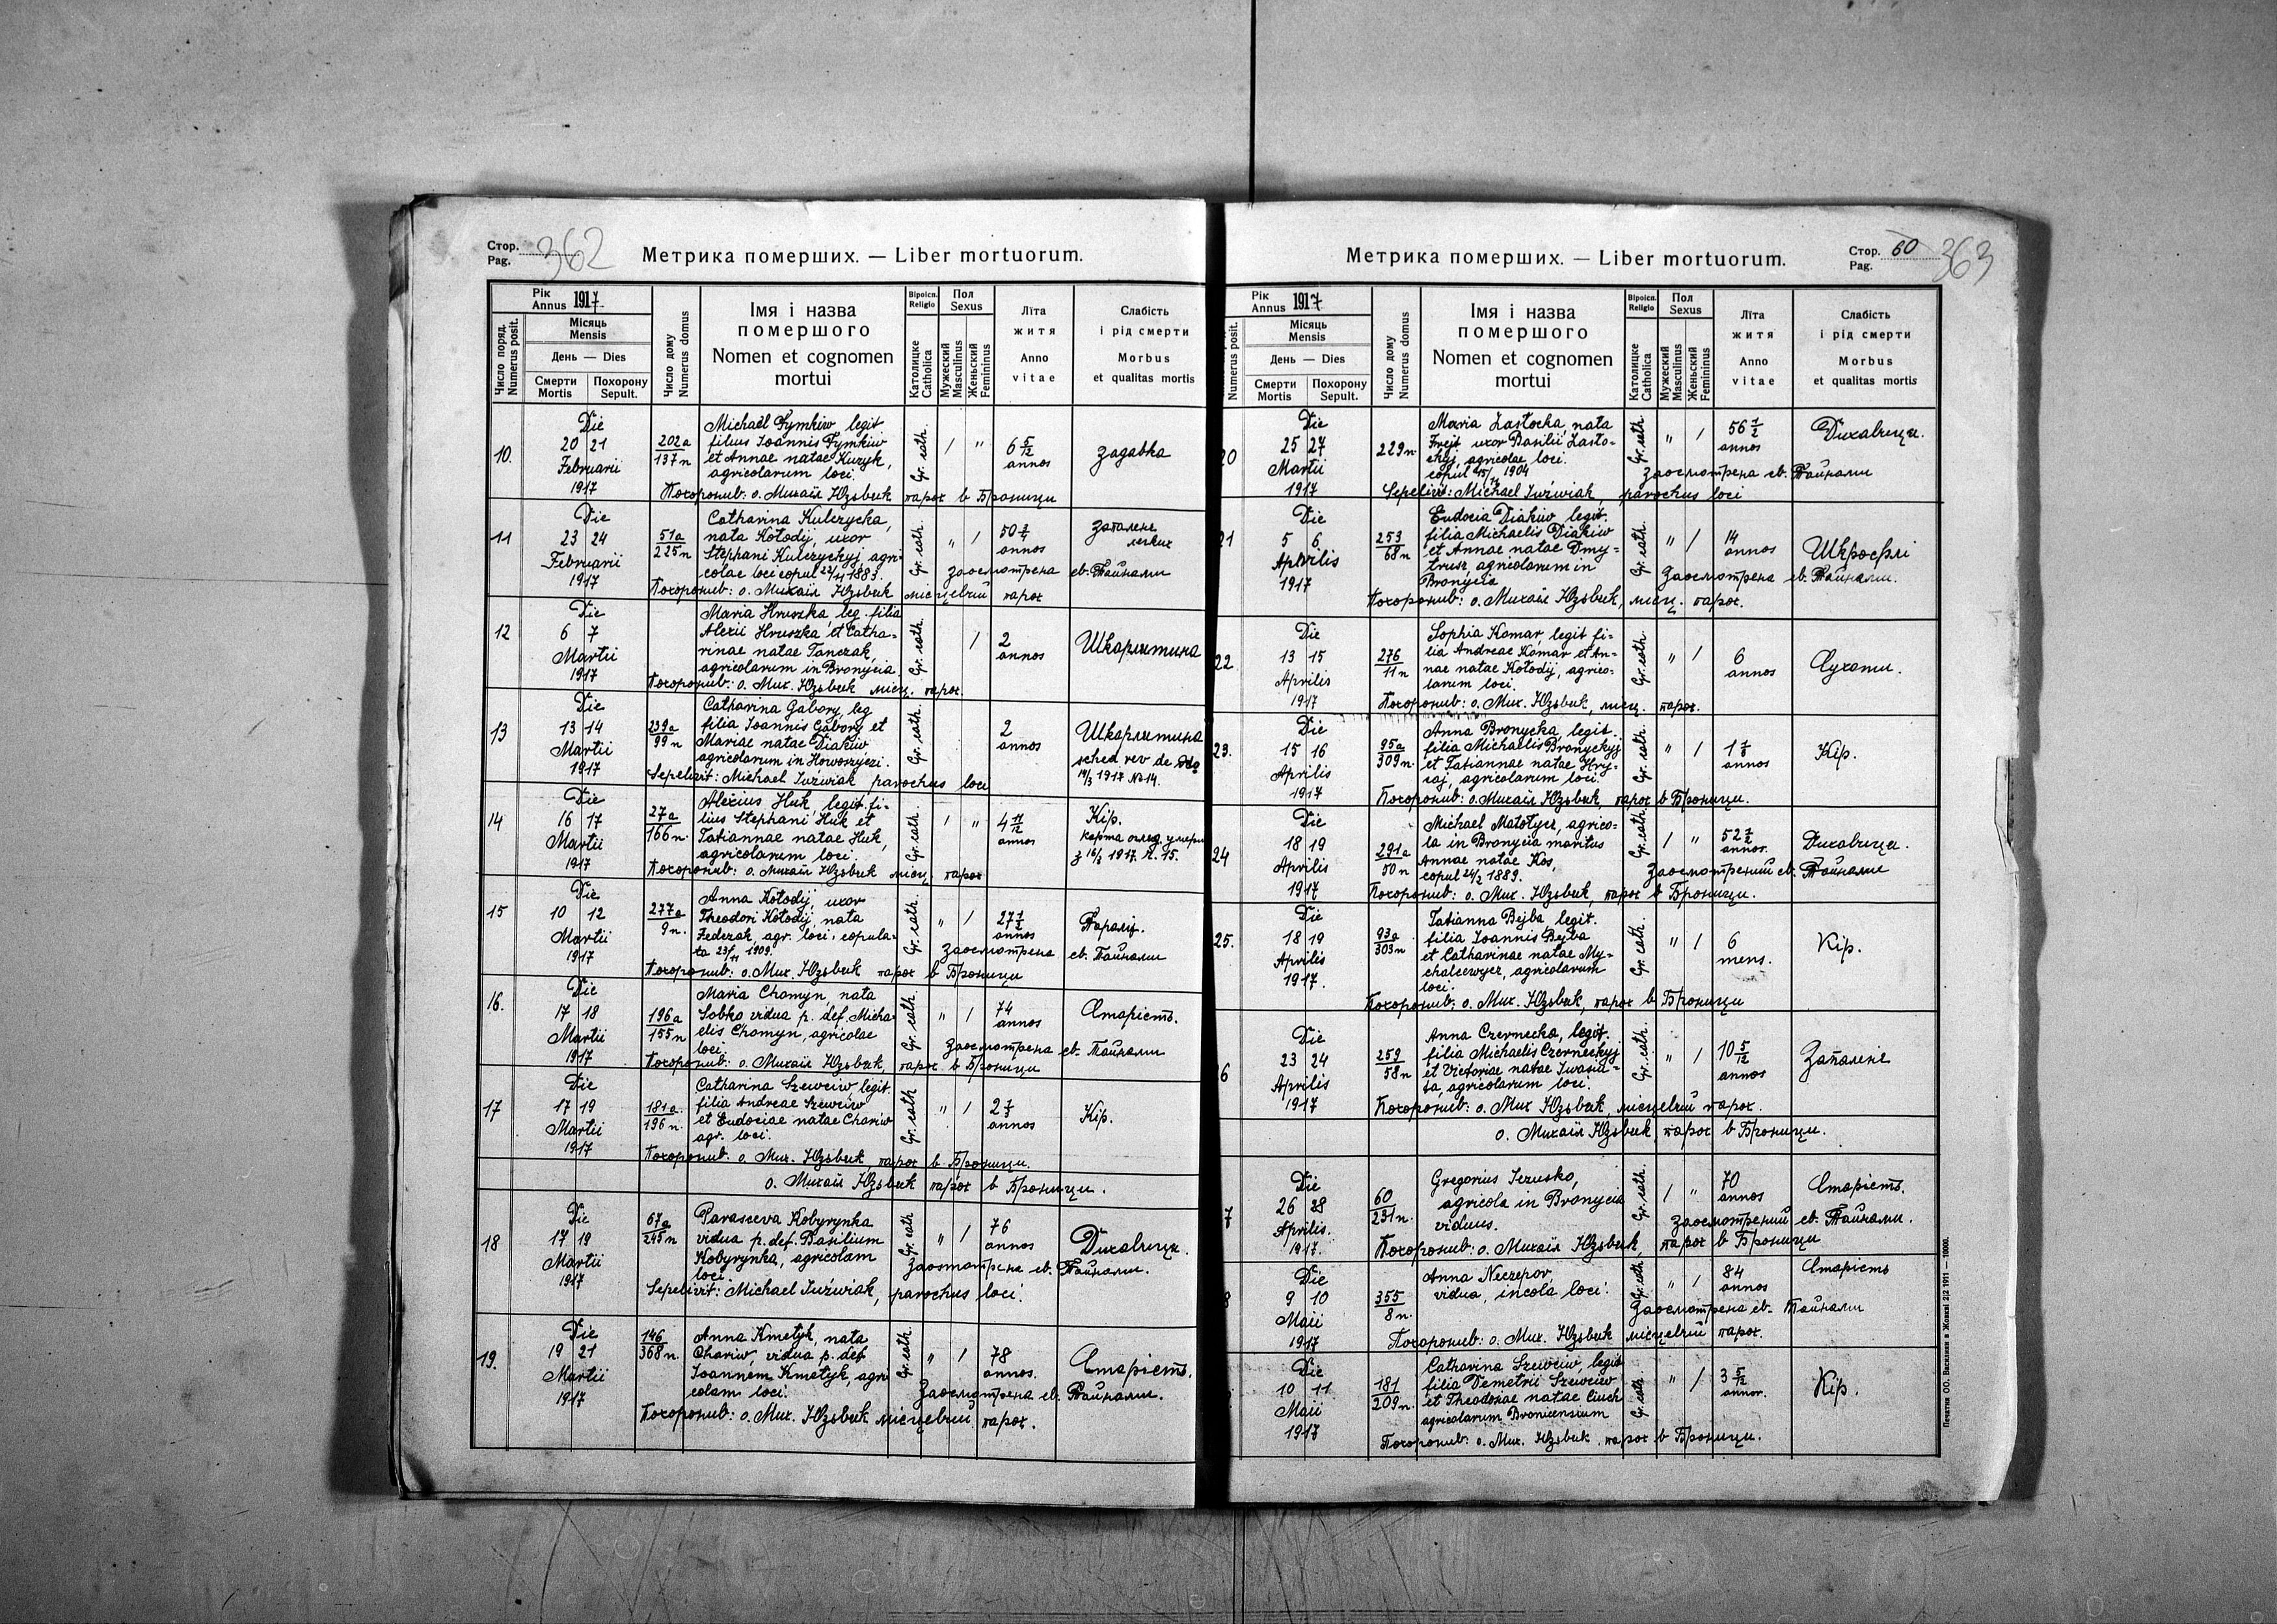 Стор.
Pag. 362
Метрика померших. — Liber mortuorum.
Рік
Annus 1917
Місяць
Mensis
День — Dies
Смерти
Mortis
Похорону
Sepult.
Число поряд.
Numerus posit.
Число дому
Numerus domus
Імя і назва
помершого
Nomen et cognomen
mortui
Віроісп.
Religio
Католицке
Catholica
Пол
Sexus
Мужеский
Masculinus
Женьский
Femininus
Лїта
житя
Anno
vitae
Слабість
і рід смерти
Morbus
et qualitas mortis
10.
Die
20 21
Februarii
1917
202a
137n
Michaël Fymkiw, legit
filius Joannis Fymkiw
et Annae natae Kuzyk,
agricolarum loci.
Gr. cath.
/ "
6 5/12
annos
задавка
Похоронив: о. Михаіл Юзьвяк парох в Броници
11
Die
23 24
Februarii
1917
51a
225n
Catharina Kulczycka,
nata Kołodij, uxor
Stephani Kulczyckyj, agri-
colae loci copul 22/11 1883.
Gr. cath.
" /
annos
запаленє
легких
Заосмотрена св. Тайнами
Похоронив: о. Михаіл Юзьвяк місцевий парох
12
Die
6 7
Martii
1917
Maria Hruszka, leg. filia
Alexii Hruszka et Catha-
rinae natae Tanczak,
agricolarum in Bronycia
Gr. cath.
/
2
annos
Шкарлятина
Похоронив: о. Мих. Юзьвяк місц. парох.
13
Die
13 14
Martii
1917
239a
99n
Catharina Gabory, leg
filia Joannis Gabory et
Mariae natae Diakiw
agricolarum in Nowoszyczi.
Gr. cath.
2
annos
Шкарлятина
sched rev de
14/3 1917 No 14.
Sepelivit: Michael Juźwiak parochus loci
14
Die
16 17
Martii
1917
27a
166n.
Alexius Huk, legit. fi-
lius Stephani Huk et
Tatiannae natae Huk,
agricolarum loci.
Gr. cath.
/ "
4 11/12
annos
Кір.
карта огляд. умерш
з 16/3 1917 Ч. 15.
Похоронив: о. Михаіл Юзьвяк місц. парох
15
Die
10 12
Martii
1917
277a
9n.
Anna Kołodij, uxor
Theodori Kołodij, nata
Federak, agr. loci, copula-
ta 23/11 1909.
Gr. cath.
" /
annos
Параліж.
Заосмотрена св. Тайнами
Похоронив: о. Мих. Юзьвяк парох в Броници
16.
Die
17 18
Martii
1917
196a
155n
Maria Chomyn, nata
Sobko vidua p. def. Micha-
elis Chomyn, agricolae
loci.
Gr. cath.
" /
74
annos
Старість.
Заосмотрена св. Тайнами
Похоронив: о. Михаіл Юзьвяк, парох в Броници
17
Die
17 19
Martii
1917
181a
196n.
Catharina Szewciw legit.
filia Andreae Szewciw
et Eudociae natae Chariw
agr. loci.
Gr. cath
" /
annos
Кір.
Похоронив: о. Мих. Юзьвяк, парох в Броници.
о. Михаіл Юзьвяк парох в Броници.
18
Die
17 19
Martii
1917
67a
245n
Parasceva Kobyrynka
vidua p. def. Basilium
Kobyrynka, agricolam
loci.
Gr. cath
" /
76
annos
Дихавиця.
Заосмотрена св. Тайнами.
Sepelivit: Michael Juźwiak, parochus loci.
19.
Die
19 21
Martii
1917
146
368n.
Anna Kmetyk, nata
Chariw, vidua p. def
Joannem Kmetyk, agri
colam loci.
Gr. cath.
" /
78
annos.
Старість.
Заосмотрена св. Тайнами.
Похоронив: о. Мих. Юзьвяк місцевий парох.
Метрика померших. — Liber mortuorum.
Стор.
Pag. 60
363
Рік
Annus 1917
Місяць
Mensis
День — Dies
Смерти
Mortis
Похорону
Sepult.
Numerus posit.
Число дому
Numerus domus
Імя і назва
помершого
Nomen et cognomen
mortui
Віроісп.
Religio
Католицке
Catholica
Пол
Sexus
Мужеский
Masculinus
Женьский
Femininus
Лїта
житя
Anno
vitae
Слабість
і рід смерти
Morbus
et qualitas mortis
20
Die
25 27
Martii
1917
229n.
Maria Łastocka, nata
uxor Basilii Łasto-
ckyj, agricolae loci.
1904
Gr. cath.
" /
annos
Дихавиця.
Заосмотрена св. Тайнами
Sepelivit: Michael Juźwiak, parochus loci
21
Die
5 6
Aprilis
1917
253
68n
Eudocia Diakiw legit.
filia Michaelis Diakiw
et Annae natae Dmy-
trusz, agricolarum in
Bronycia
Gr. cath.
" /
14
annos
Шкрофлї
Заосмотрена св. Тайнами.
Похоронив: о. Михаіл Юзьвяк, місц. парох.
22
Die
13 15
Aprilis
1917
276
11n
Sophia Komar, legit fi-
lia Andreae Komar et An-
nae natae Kołodij, agrico-
larum loci.
Gr. cath.
" /
6
annos
Сухоти.
Похоронив: о. Михаіл Юзьвяк, місц. парох.
23.
Die
15 16
Aprilis
1917
95a
309n.
Anna Bronycka, legit.
filia Michaelis Bronyckyj
et Tatiannae natae Hry-
caj, agricolarum loci.
Gr. cath.
" /
annos
Кір.
Похоронив: о. Михаіл Юзьвяк, парох в Броници.
24
Die
18 19
Aprilis
1917
291a
50n
Michael Matołycz, agrico-
la in Bronycia maritus
Annae natae Kos,
copul 24/2 1889.
Gr. cath.
/ "
annos.
Дихавиця.
Заосмотрений св. Тайнами
Похоронив: о. Мих. Юзьвяк, парох в Броници.
25.
Die
18 19
Aprilis
1917.
93a
303n
Tatianna Bejba legit.
filia Joannis Bejba
et Catharinae natae My-
chalcewycz, agricolarum
loci.
Gr. cath.
" /
6
mens.
Кір.
Похоронив: о. Мих. Юзьвяк, парох в Броници
6
Die
23 24
Aprilis
1917
259
58n
Anna Czernecka, legit.
filia Michaelis Czerneckyj
et Victoriae natae Iwasiu-
ta, agricolarum loci.
Gr. cath.
" /
10 5/12
annos
Запаленє
Похоронив: о. Мих Юзьвяк, місцевий парох.
о. Михаіл Юзьвяк, парох в Броници.
7
Die
26 28
Aprilis.
1917.
60
231n.
Gregorius Jezusko,
agricola in Bronycia
viduus.
Gr. cath.
/ "
70
annos
Старість.
Заосмотрений св. Тайнами.
Похоронив: о. Михаіл Юзьвяк, парох в Броници
8
Die
9 10
Maii
1917
355
8n.
Anna Neczepor,
vidua, incola loci.
Gr. cath
" /
84
annos
Старість
Заосмотрена св. Тайнами
Похоронив: о. Мих. Юзьвяк місцевий парох.
Die
10 11
Maii
1917
181
209n.
Catharina Szewciw, legit
filia Demetrii Szewciw
et Theodosiae natae
agricolarum Bronicensium
Gr. cath
" /
3 5/12
annor.
Кір.
Похоронив: о. Мих. Юзьвяк, парох в Броници.
Печатня ОО. Василиян в Жовкві 2|2 1911 — 10000.